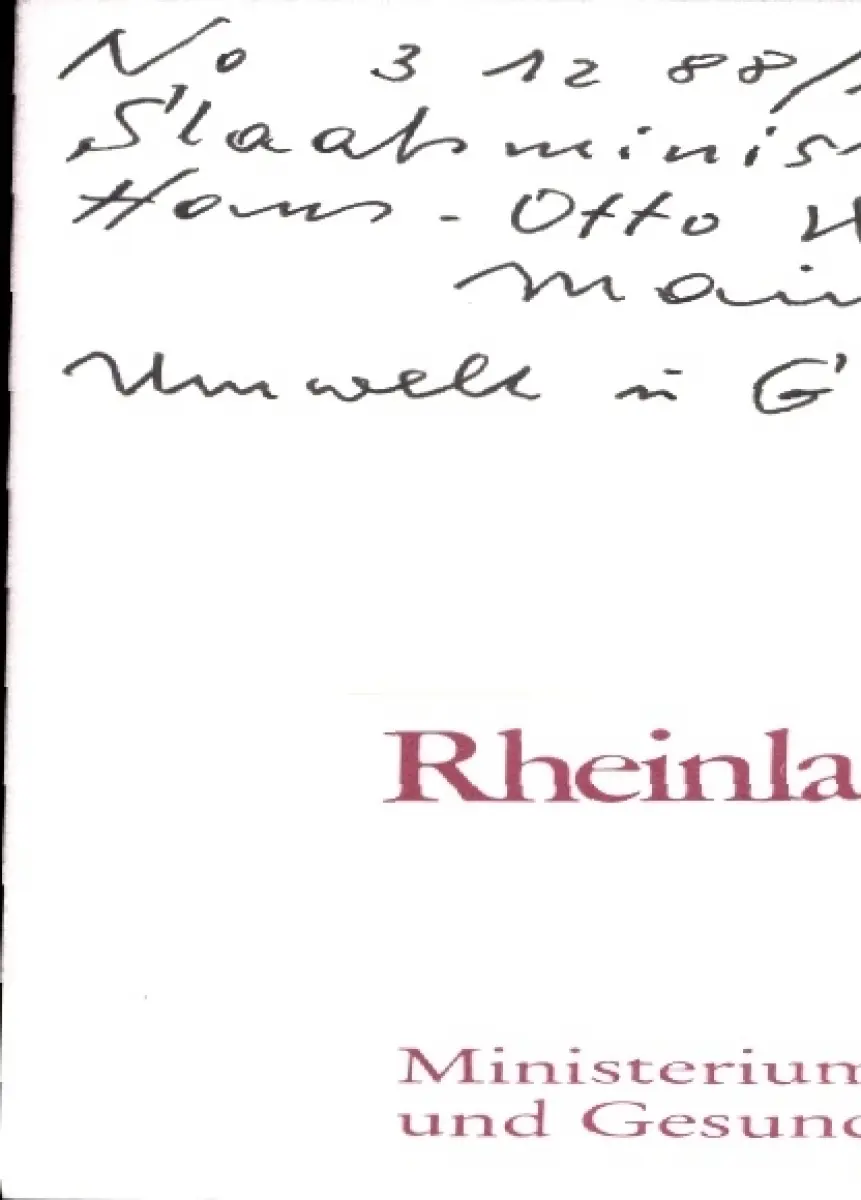 No 3 12 88/
Staatsminis
Hans-Otto W
Main
Umwelt u G'
Rheinla
Ministerium
und Gesund